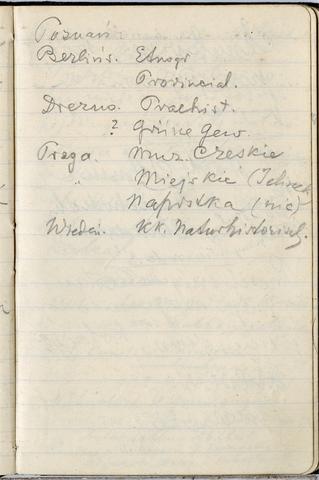 Poznań:
Berlin. Etnogr
Provincial.
Drezno. Praehist.
? Grüne Gew.
Praga. Muz. Czeskie
" Miejskie
Naprstka (nic)
Wiedeń. KK. Naturhistorisch.